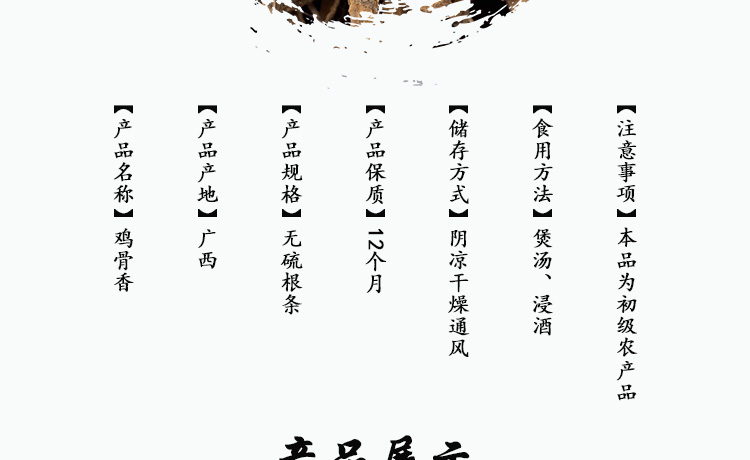 【产品名称】鸡骨香
【产品产地】广西
【产品规格】无硫根条
【产品保质】12个月
【储存方式】阴凉干燥通风
【食用方法】煲汤、浸酒
【注意事项】本品为初级农产品
产品展示